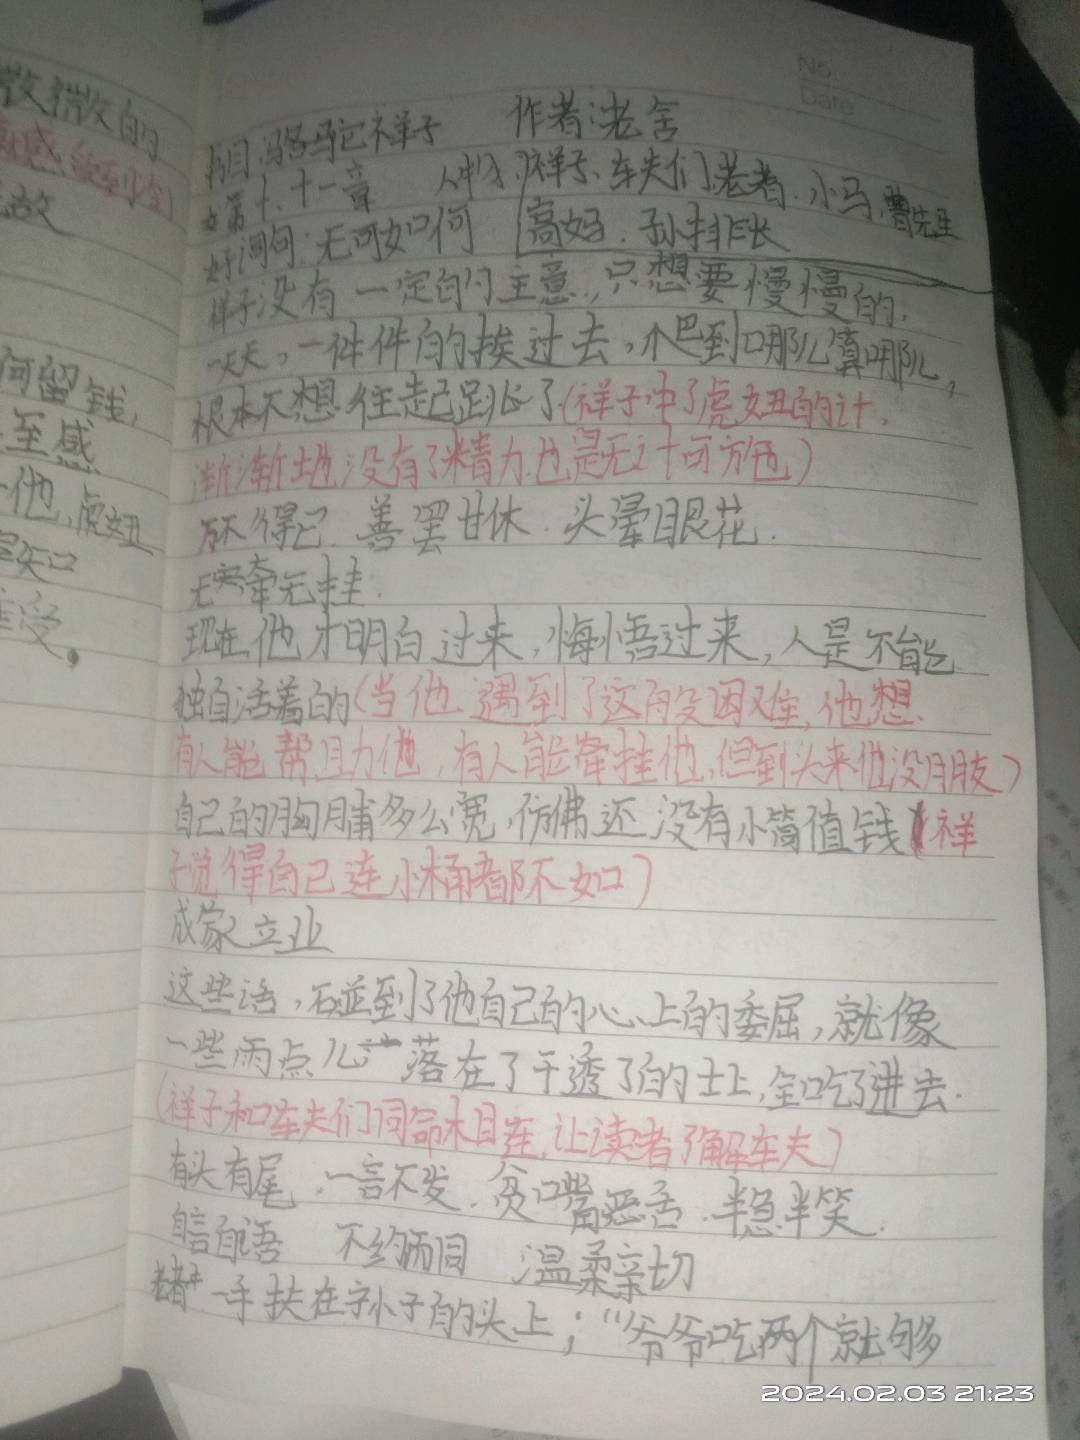 微微的
感
故
何留钱,
至感
他,虎妞
受.
No.
Date
书目:骆驼祥子 作者:老舍
第十、十一章 人物:祥子、车夫们、老者、小马、曹先生
好词句:无可如何 高妈、孙排长
祥子没有一定的主意,只想要慢慢的,
一天天,一件件的挨过去,爬到哪儿算哪儿,
根本不想往起跳了(祥子中了虎妞的计,
渐渐地没有了精力,也是无计可施)
万不得已、善罢甘休、头晕眼花、
无牵无挂.
现在他才明白过来,悔悟过来,人是不能
独自活着的(当他遇到了这段困难,他想
有人能帮助他,有人能牵挂他,但到头来他没朋友)
自己的胸脯多么宽,仿佛还没有小筒值钱(祥
子觉得自己连小桶都不如)
成家立业
这些话,碰到了他自己的心上的委屈,就像
一些雨点儿落在了干透了的土上,全吃了进去.
(祥子和车夫们同命相连,让读者了解车夫)
有头有尾、一言不发、贫嘴恶舌、半急半笑、
自言自语 不约而同 温柔亲切
老者 一手扶在孙子的头上;“爷爷吃两个就够
2024.02.03 21:23